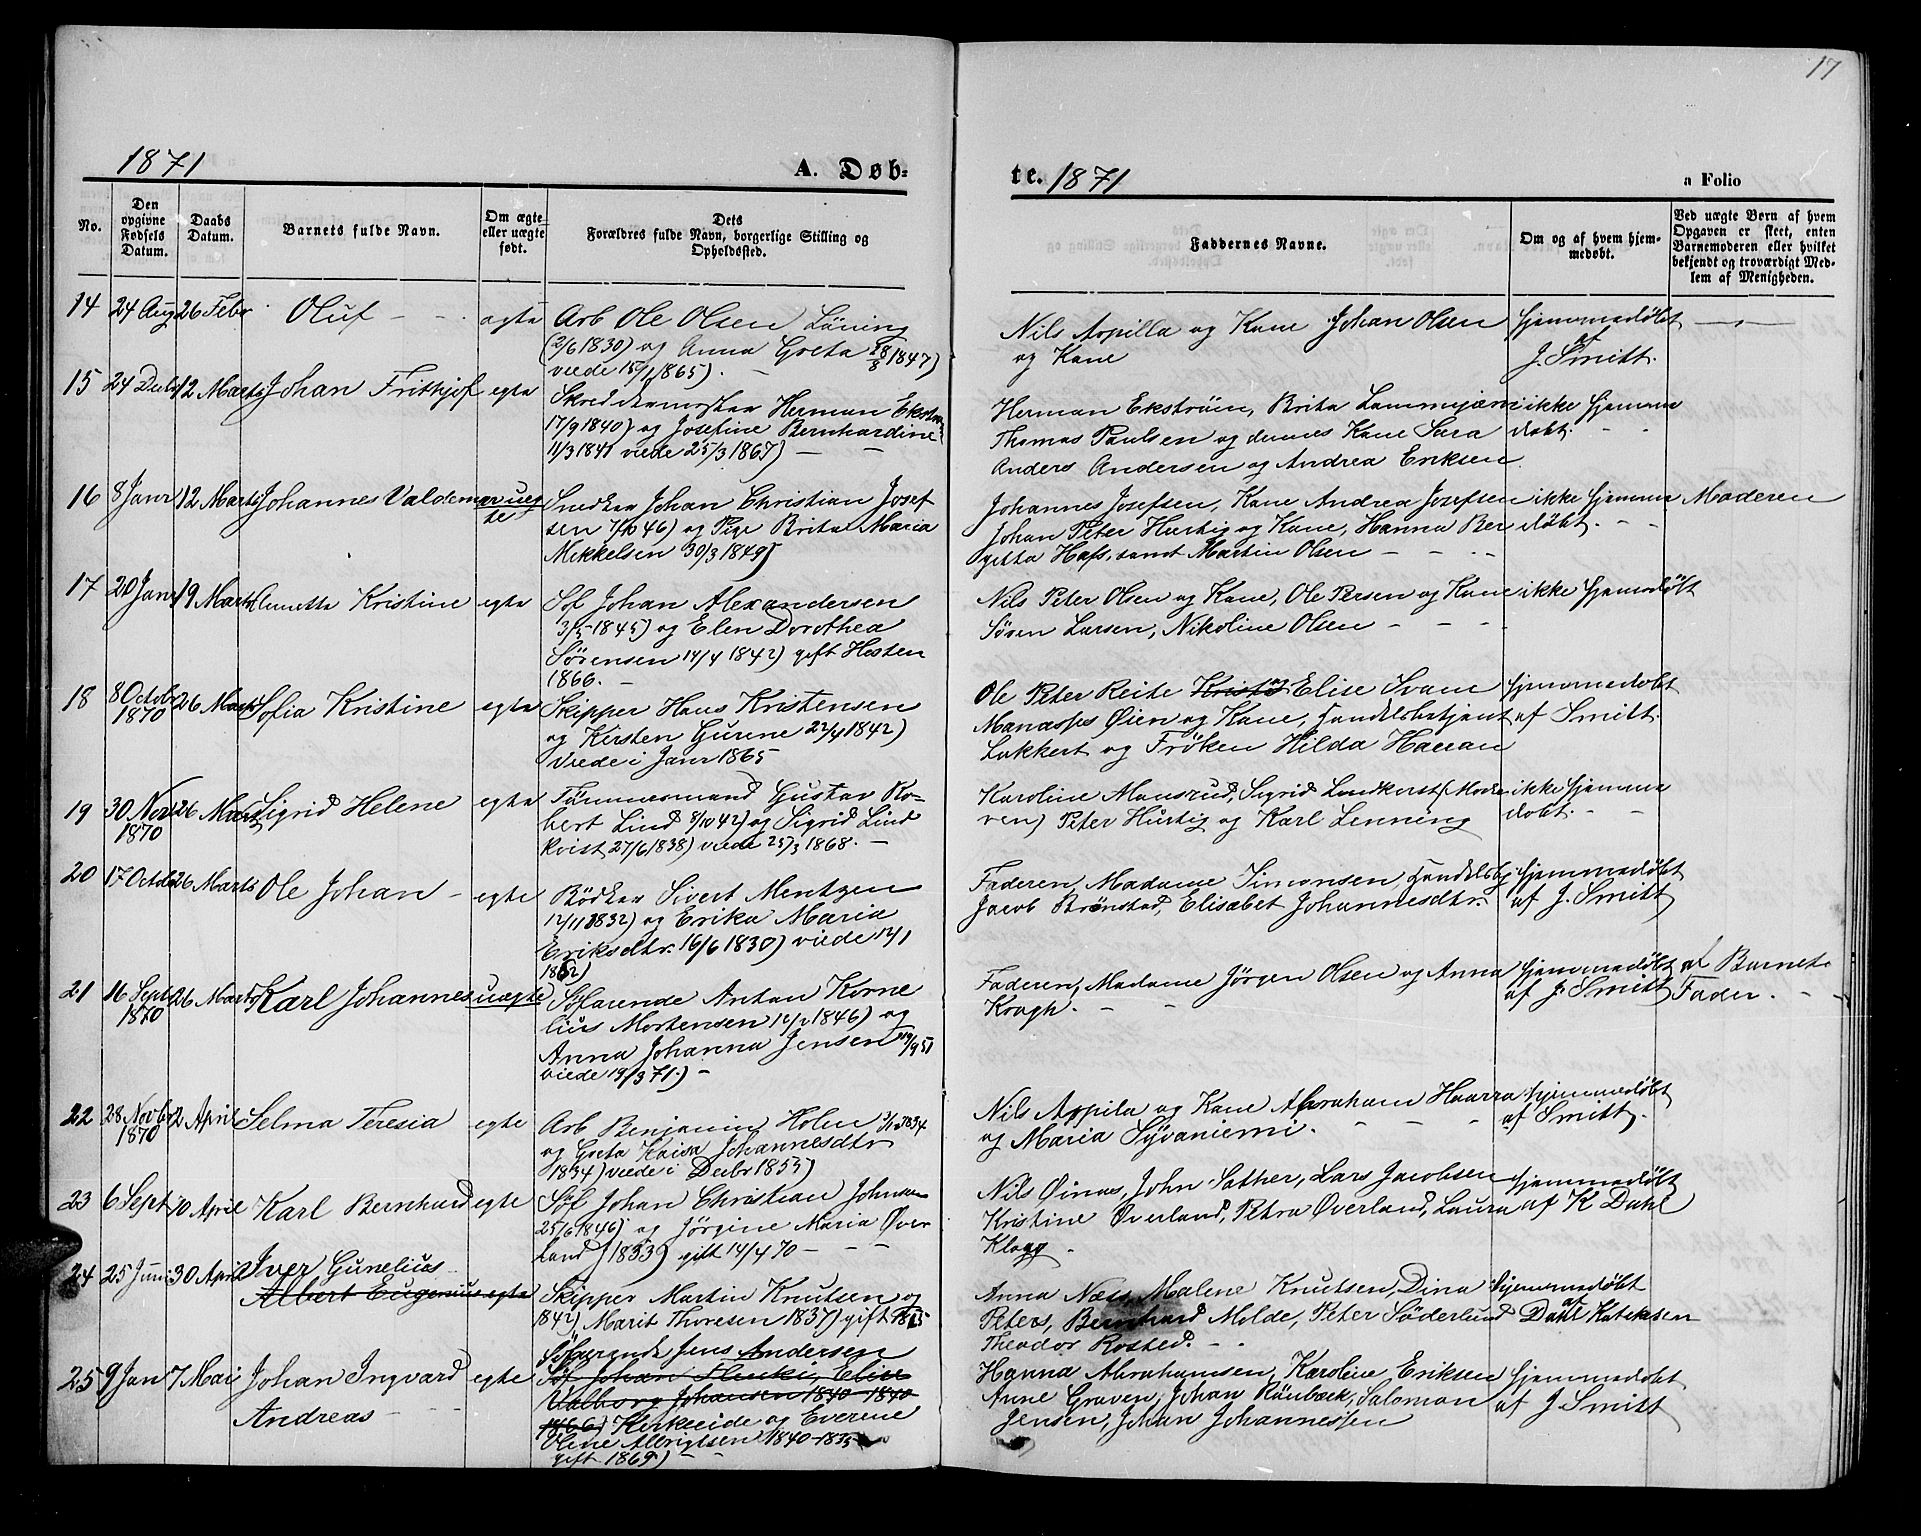 17
1871
A. Døb-
te. 1871
a Folio
No.
Den opgivne Fødsels Datum.
Daabs Datum.
Barnets fulde Navn.
Om ægte eller uægte født.
Dets Forældres fulde Navn, borgerlige Stilling og Opholdssted.
Faddernes Navne.
Om og af hvem hjem-medøbt.
Ved uægte Børn af hvem Opgaven er skeet, enten Barnemoderen eller hvilket bekjendt og troværdigt Med-lem af Menigheden.
14 24 Aug 26 Febr Oluf - - ægte Arb Ole Olsen Løning
(2/6 1830) og Anna Greta 1847)
viede 1865). -
Nils Aspilla og Kane Johan Olsen hjemmedøbt
og Kane af J. Smitt.
15 24 Decbr 12 Marts Johan Frithjof egte Skreddermester Herman Ekstrøm
17/9 1840) og Josefine Bernhardine
11/3 1841 viede 25/3 1867) - -
Herman Ekström, Brita Lammijærvi ikke hjemme
Thomas Paulsen og dennes Kane Sara døbt. - -
Anders Andersen og Andrea Eriksen
16 8 Janr 12 Marts Johannes Valdemar uegte Snedker Johan Christian Josef
sen 7/10 46) og Pige Brita Maria
Mikkelsen 30/3 1849)
Johannes Josefsen, Kane Andrea Josefsen ikke hjemme Moderen
Johan Peter Hurtig og Kane, Hanna Ber døbt. - -
gitta Hafs, samt Martin Olsen - - - -
17 20 Janr 19 Marts Anetta Kristine egte Søf Johan Alexandersen
1845) og Elen Dorothea
Sørensen 14/4 1842) gift Høsten
1866. -
Nils Peter Olsen og Kane, Ole Persen og Kane ikke hjemdøbt
Søren Larsen, Nikoline Olsen - - - -
18 8 Octobr 1870 26 Marts Sofia Kristine egte Skipper Hans Kristensen
og Kirsten Gurene 22/4 1842)
viede i Janr 1865
Ole Peter Reite og Elise Svane hjemmedøbt
Manasses Øien og Kane, Handelsbetjent af Smitt.
Lakkert og Fröken Hilda Hauan
19 30 Nov 1870 26 Marts Sigrid Helene egte Tømmermand Gustav Ro-
bert Lind 8/10 42) og Sigrid Lind
kvist 27/6 1838) viede 25/3 1868. -
Karoline Mansrud, Sigrid Lindkvist (Mode ikke hjemme
ren) Peter Hurtig og Karl Lenning døbt. - -
20 17 Octobr 26 Marts Ole Johan - egte Bödker Sivert Mentzen
12/11 1832) og Erika Maria
Eriksdtr. 16/6 1830) viede 12/1
1862)
Faderen, Madame Simonsen, Handelsbj hjemmedøbt
Jacob Brønstad, Elisabet Johannesdtr. af J. Smitt
21 16 Sept 1870 26 Marts Karl Johannes uægte Søfarende Antan Korne
lius Mortensen 1846) og
Anna Johanna Jensen 51
viede 19/3 71.) -
Faderen, Madame Jörgen Olsen og Anna hjemmedøbt af Barnets
Krogh. - - af J. Smitt Fader. - -
22 28 Novbr 1870 2 April Selma Teresia egte Arb Benjamin Holm 1834
og Greta Kaisa Johannesdtr
1834) viede i Decbr 1855)
Nils Aspila og Kane Abraham Haara hjemmedøbt
og Maria Syvaniemi. - - - af Smitt.
23 6 Sept 10 April Karl Bernhard egte Søf Johan Christian Johnsen
25/6 1846) og Jörgine Maria Øver
land (1833) gift 14/4 70 - - -
Nils Øinas, John Sather, Lars Jacobsen hjemmedøbt
Kristine Øverland, Petra Øverland, Laura af K Dahl
Klogg -
24 25 Juni 30 April Iver Gunelius
Albert Eugenius egte Skipper Martin Knutsen og
1842) Marit Thoresen 1837) gift 1865
Anna Næss, Malene Knutsen, Dina hjemmedøbt
Peters, Bernhard Molde, Peter Söderlund af Dahl Katekesen
Theodor Rosted. - -
25 9 Jan 7 Mai Johan Ingvard egte Søfarende Jens Andersen
Andreas - - Søf Johan Elise
Valborg Johansen 1840 - 1840
1866) Kirkeeide og Everene
Oline Albrigtsen 1840-1835
gift 1869) - -
Hanna Abrahamsen, Karoline Eriksen hjemmedøbt
Anne Graven, Johan Rönbæck, Salomon af J. Smitt
Jensen, Johan Johannessen